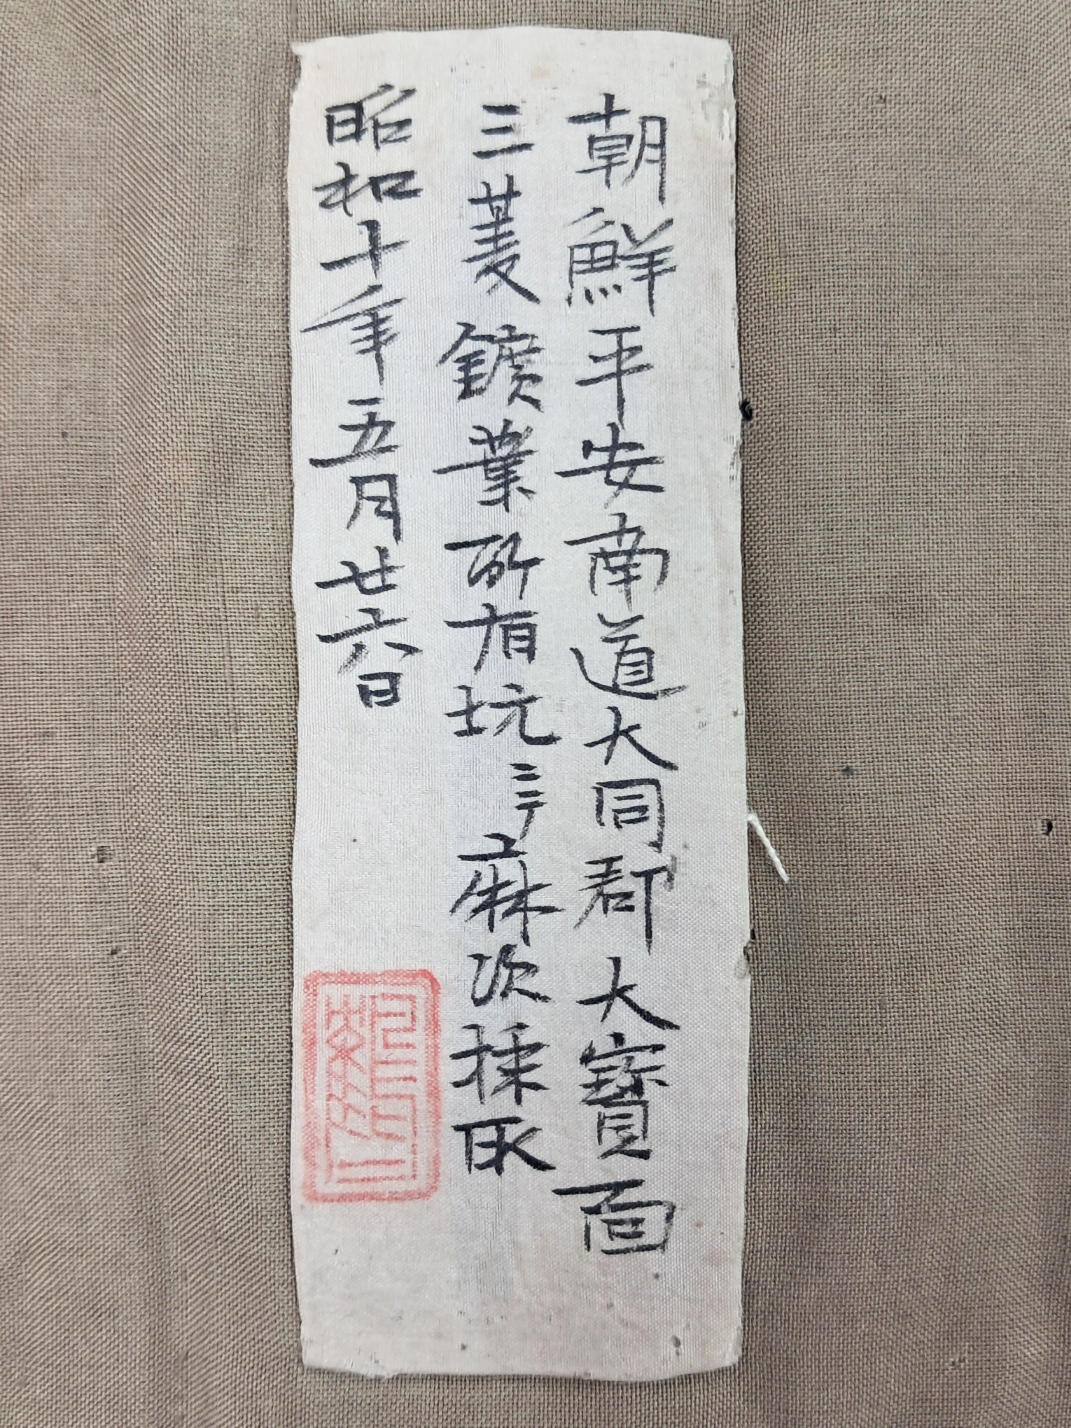 朝鮮平安南道大同郡大寶面
三菱鑛業所有坑ニテ麻次採取
昭和十年五月廿六日